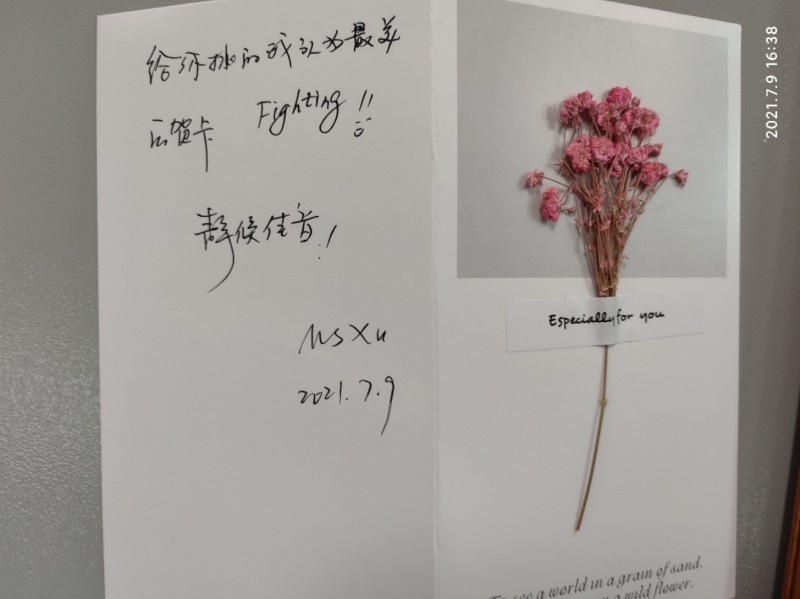 给你挑的我认为最美
的贺卡 Fighting!!
静候佳音!
Ms Xu
2021.7.9
Especially for you
To see a world in a grain of sand.
a wild flower.
2021.7.9 16:38